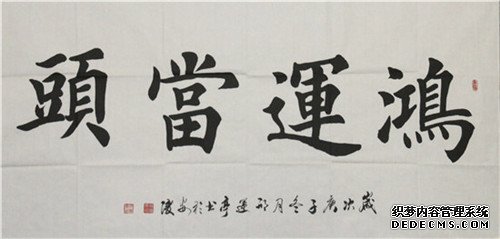 鴻運當頭
歲次庚子冬月亭书於
织梦内容管理系统
DEDECMS.COM